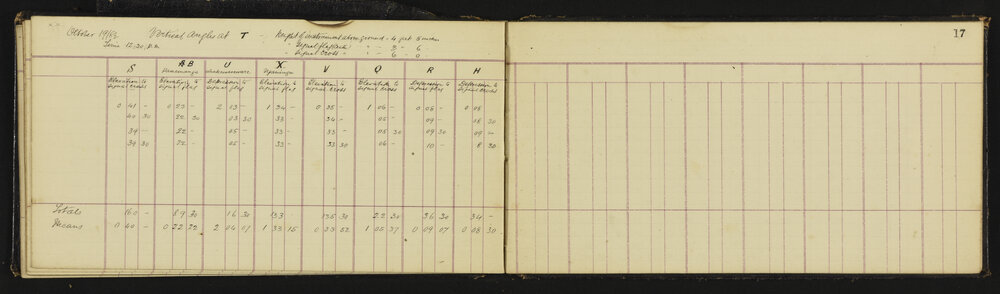 October Vertical Angles at T - Height of instrument above ground - 4 feet 5 inches
Time 12.30 P.M. " Signal flag " - 8 - 6
" Signal Cross " - 6 - 0
17
S AB U X V Q R H
Elevation to Elevation to Depression to Elevation to Elevation to Elevation to Depression to Depression to
Signal Cross Signal flag Signal flag Signal flag Signal Cross Signal Cross Signal flag Signal Cross
0 41 - 0 23 - 2 03 - 1 34 - 0 35 - 1 06 - 0 08 - 0 08
40 30 22 30 03 30 33 - 34 - 05 - 09 - 08 30
39 - 22 - 05 - 33 - 33 - 05 30 09 30 09 -
39 30 22 - 05 - 33 - 33 30 06 - 10 - 8 30
Totals 160 - 89 30 16 30 133 135 30 22 30 36 30 34 -
Means 0 40 - 0 22 22 2 04 07 1 33 15 0 33 52 1 05 37 0 09 07 0 08 30